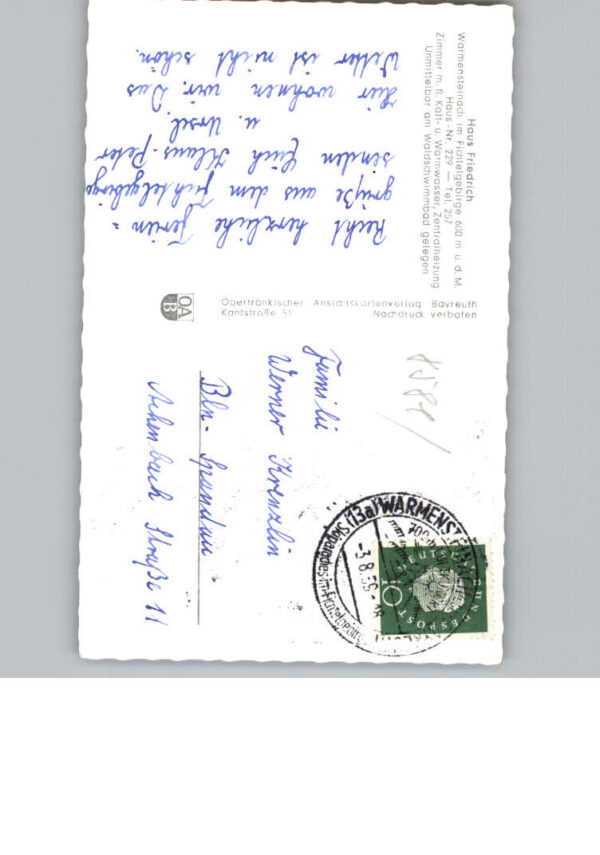 Haus Friedrich
Warmensteinach im Fichtelgebirge 600 m ü. d. M.
Haus-Nr. 229 — Tel. 257
Zimmer m. fl. Kalt- u. Warmwasser, Zentralheizung
Unmittelbar am Waldschwimmbad gelegen
Recht herzliche Ferien-
grüße aus dem Fichtelgebirge
senden Euch Klaus-Peter
u. Ursel.
Hier wohnen wir. Das
Wetter ist nicht schön.
OA
B
Oberfränkischer Ansichtskartenverlag Bayreuth
Kantstraße 51 Nachdruck verboten
Familie
Werner Krenzlin
Bln- Spandau
Achenbach Straße 11
(13a) WARMENST
3.8.59-18
DEUTSCHE BUNDESPOST
10